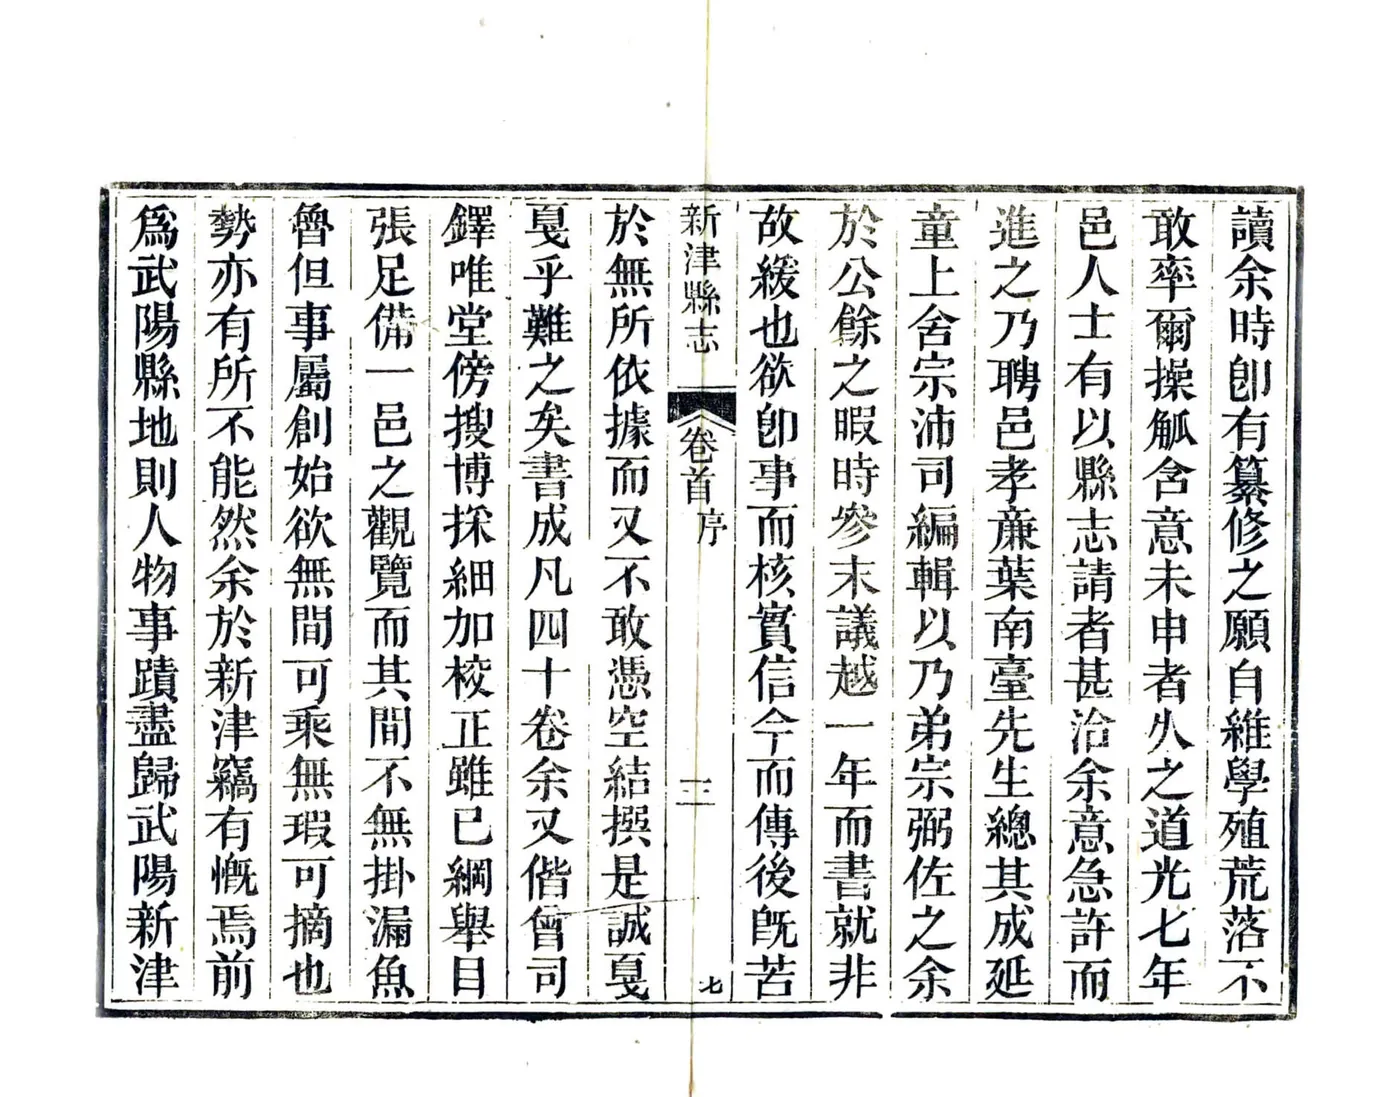 讀余時卽有纂修之願自維學殖荒落不
敢率爾操觚含意未申者久之道光七年
邑人士有以縣志請者甚洽余意急許而
進之乃聘邑孝亷葉南臺先生總其成延
童上舍宗沛司編輯以乃弟宗弼佐之余
於公餘之暇時參末議越一年而書就非
故緩也欲卽事而核實信今而傳後旣苦
新津縣志
卷首
序
三
七
於無所依據而又不敢憑空結撰是誠戛
戛乎難之矣書成凡四十卷余又偕曾司
鐸唯堂傍搜博採細加校正雖已綱舉目
張足備一邑之觀覽而其間不無掛漏魚
魯但事屬創始欲無間可乘無瑕可摘也
勢亦有所不能然余於新津竊有慨焉前
爲武陽縣地則人物事蹟盡歸武陽新津